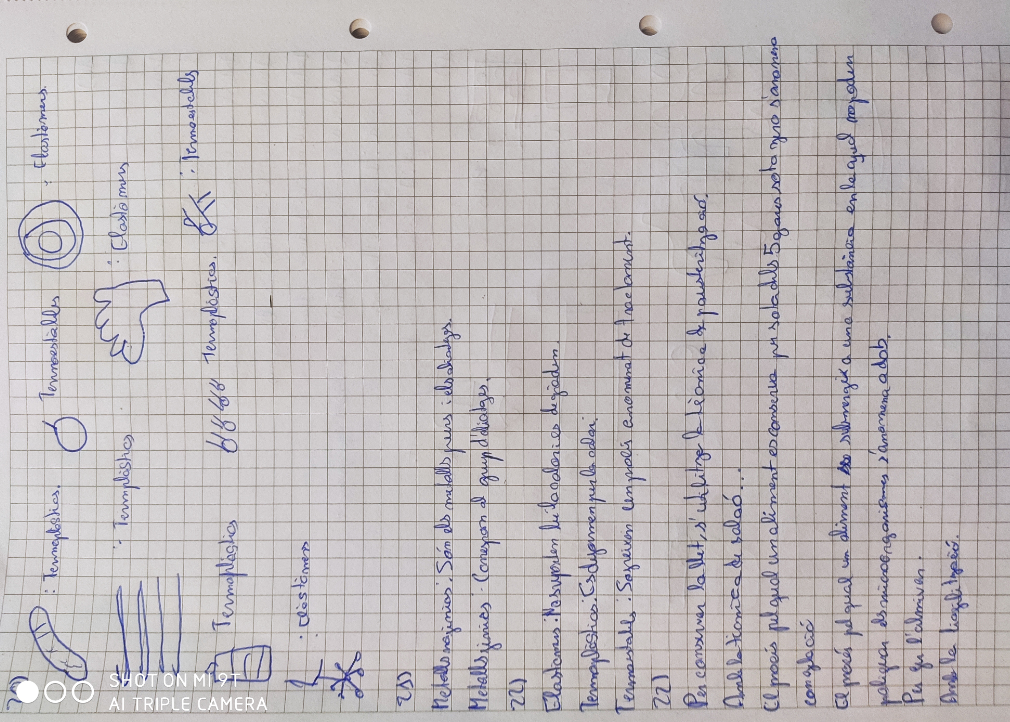 20)
: Termoplàstics.
Termoestables
: Elastòmers.
: Termoplàstics
: Elastòmers
Termoplàstics
Termoplàstics.
: Termoestables
: elastòmers
21)
Metalls magnics: Són els metalls purs i els aliatges.
Metalls fèrrics: Corresponen al grup d'aliatges.
22)
Elastomers: No suporten bé la calor i es degraden.
Termoplàstics: Es deformen per la calor.
Termoestable: Segueixen un procés anomenat de tractament.
22)
Per conservar la llet, s'utilitza la tècnica de pasteurització.
Amb la tècnica de salaó...
El procés pel qual un aliment es conserva per sota dels 5 graus sota zero s'anomena
congelació
El procés pel qual un aliment submergix a una substància en la qual no poden
els microorganismes s'anomena adob.
Per qu l'
Amb la liofilització.
SHOT ON MI 9T
AI TRIPLE CAMERA